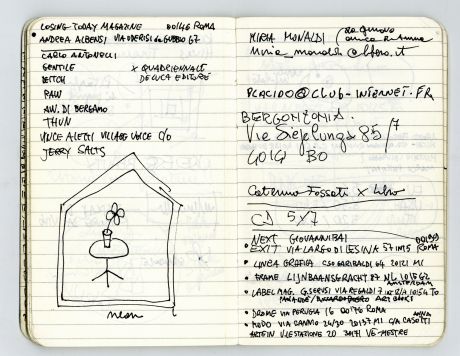 LOSING TODAY MAGAZINE 00146 ROMA
ANDREA ALBENSI VIA ODERISI da GUBBIO 67
CARLO ANTONELLI
GENTILE X QUADRIENNALE
DEITCH DE LUCA EDITORE
PAW
AW. DI BERGAMO
THUN
VINCE ALETTI VILLAGE VOICE C/O
JERRY SALTS
neon
MIRIA MONALDI
miria_monaldi@libero.it
PLACIDO@CLUB-INTERNET.FR
BERGONZONI
Via 85/7
BO
Caterina Fossati x Libro
CD 5x7
NEXT GIOVANNI BAI
EXIT VIA LARGO DI LESINA 57 ROMA
LINEA GRAFICA CSO GARIBALDI 64 20121 MI
FRAME LIJNBAANSGRACHT 87 NL 1015GZ
AMSTERDAM
LABEL MAG. G. SERVSI VIA REGALDI 7 TO
DROME VIA PERUGIA 16 00176 ROMA
MODO VIA SANNIO 24/20 20137 MI C/A CASOTTI
ARTE IN V. STAZIONE 20 30171 VE-MESTRE